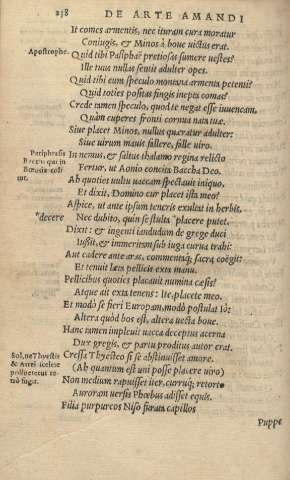 238 DE ARTE AMANDI
It comes armentis, nec ituram cura moratur
Coniugis, & Minos à boue uictus erat.
Apostrophe.
Quid tibi Pasiphaë pretiosas sumere uestes?
Ille tuus nullas sentit adulter opes.
Quid tibi cum speculo montana armenta petenti?
Quid toties positas fingis inepta comas?
Crede tamen speculo, quod te negat esse iuuencam,
Quàm cuperes fronti cornua nata tuæ.
Siue placet Minos, nullus quæratur adulter:
Siue uirum mauis fallere, falle uiro.
Periphrasis
Bacchi qui in
Bœotia coli
tur.
In nemus, & saltus thalamo regina relicto
Fertur, ut Aonio concita Baccha Deo.
Ah quoties uultu uaccam spectauit iniquo,
Et dixit, Domino cur placet ista meo?
Aspice, ut ante ipsum teneris exultat in herbis,
"decere
Nec dubito, quin se stulta "placere putet.
Dixit: & ingenti iamdudum de grege duci
Iussit, & immeritam sub iuga curua trahi:
Aut cadere ante aras, commentaq; sacra coëgit:
Et tenuit læta pellicis exta manu.
Pellicibus quoties placauit numina cæsis?
Atque ait exta tenens: Ite, placete meo.
Et modò se fieri Europam, modò postulat Io:
Altera quòd bos est, altera uecta boue.
Hanc tamen impleuit uacca deceptus acerna
Dux gregis, & partu proditus autor erat.
Sol, ne Thyestis
& Atrei scelere
pollueretur re-
trò fugit.
Cressa Thyesteo si se abstinuisset amore.
(Ah quantum est uni posse placere uiro)
Non medium rapuisset iter, curruq; retorto
Auroram uersis Phœbus adisset equis.
Filia purpureos Niso furata capillos
Puppe